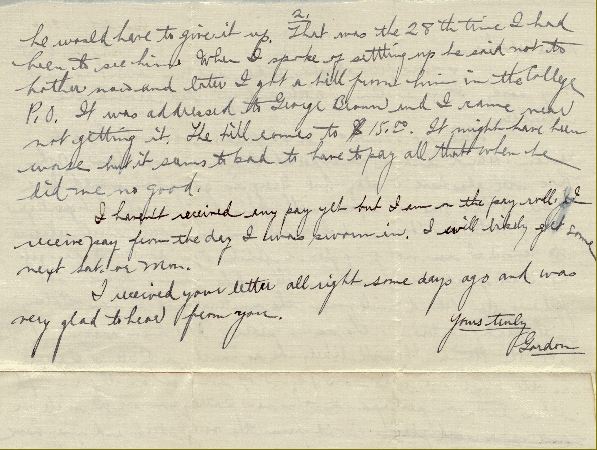 2.
he would have to give it up. That was the 28th time I had
been to see him. When I spoke of settling up he said not to
bother now and later I got a bill from him in the College
P.O. It was addressed to George Brown and I came near
not getting it. The bill comes to $15.00. It might have been
worse but it seems to bad to have to pay all that when he
did me no good.
I haven't received any pay yet but I am on the pay roll. I
receive pay from the day I was sworn in. I will likely get some
next Sat. or Mon.
I received your letter all right some days ago and was
very glad to hear from you.
Yours truly
Gordon